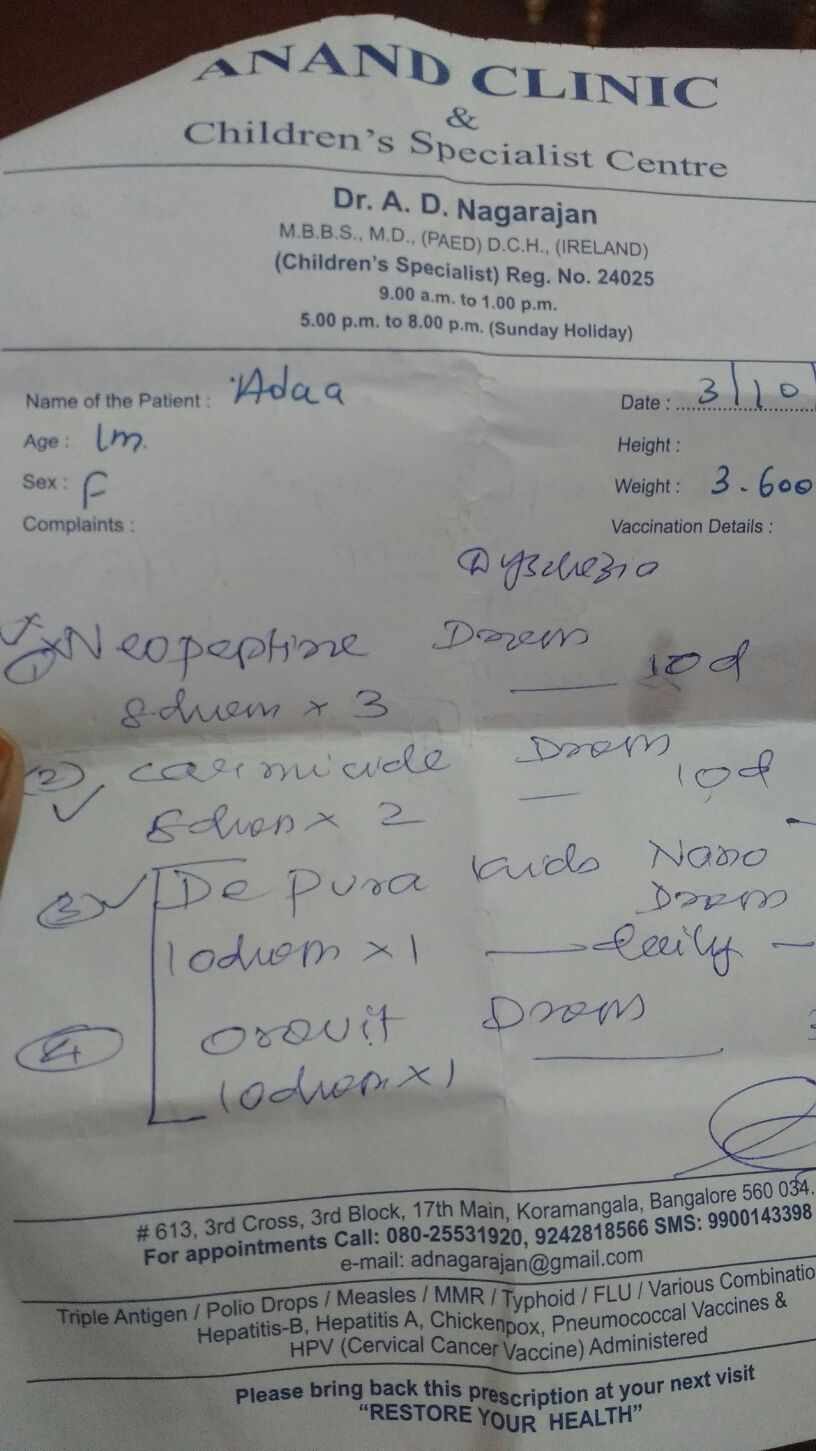 ANAND CLINIC
&
Children's Specialist Centre
Dr. A. D. Nagarajan
M.B.B.S., M.D., (PAED) D.C.H., (IRELAND)
(Children's Specialist) Reg. No. 24025
9.00 a.m. to 1.00 p.m.
5.00 p.m. to 8.00 p.m. (Sunday Holiday)
Name of the Patient : Adaa
Date : 3/10/
Age : 1m.
Height :
Sex : F
Weight : 3.600
Complaints :
Vaccination Details :
Dyschezia
1 Neopeptine Drops
8 drops x 3 — 10d
2 carmicide Drops
8 drops x 2 — 10d
3 De Pura Kids Nano
Drops
10 drops x 1 — daily —
4 Orovit Drops
10 drops x 1
# 613, 3rd Cross, 3rd Block, 17th Main, Koramangala, Bangalore 560 034.
For appointments Call: 080-25531920, 9242818566 SMS: 9900143398
e-mail: adnagarajan@gmail.com
Triple Antigen / Polio Drops / Measles / MMR / Typhoid / FLU / Various Combinatio
Hepatitis-B, Hepatitis A, Chickenpox, Pneumococcal Vaccines &
HPV (Cervical Cancer Vaccine) Administered
Please bring back this prescription at your next visit
"RESTORE YOUR HEALTH"